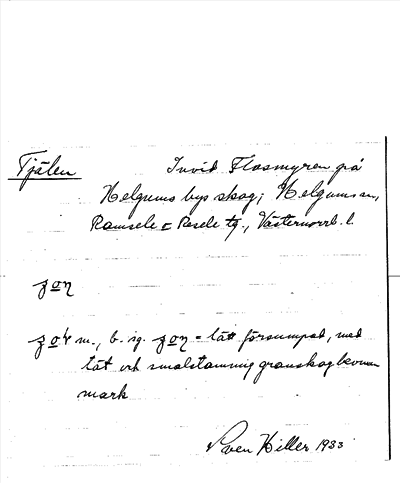 Tjälen Invid Flasmyren på
Helgums bys skog; Helgums sn,
Ramsele o Resele tg., Västernorrl. l.
m., b. sg. = lätt försumpad, med
tät och smalstammig granskog
mark
Sven Hiller 1933